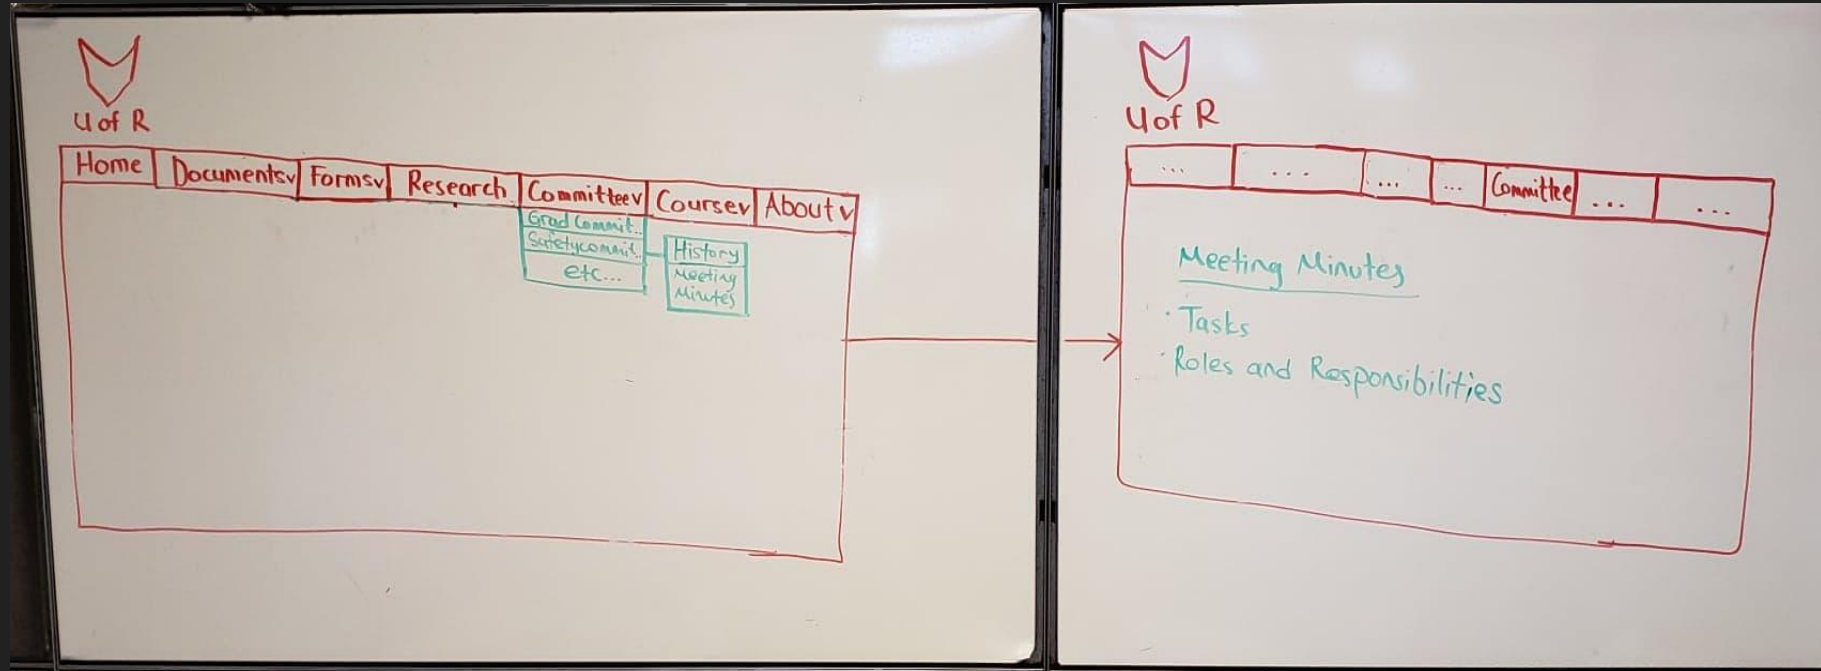 U of R
Home Documents v Forms v Research Committee v Course v About v
Grad Commit..
Safetycommit..
etc...
History
Meeting
Minutes
U of R
... ... ... ... Committee ... ...
Meeting Minutes
· Tasks
· Roles and Responsibilities